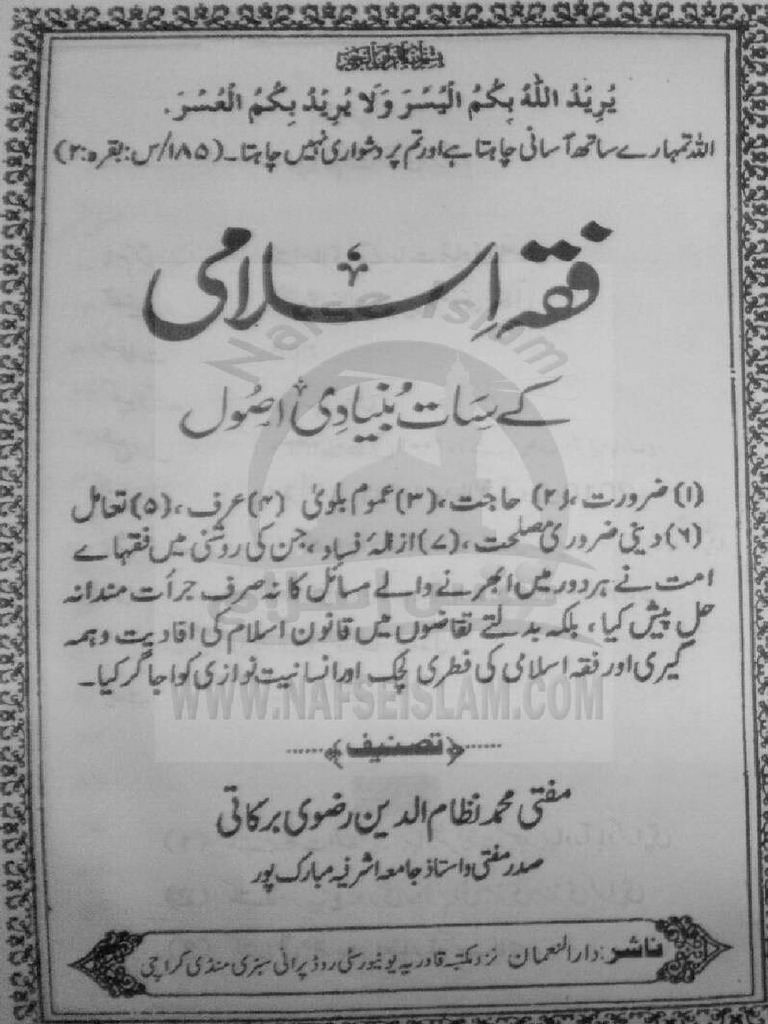 بسم اللہ الرحمن الرحیم
یُرِیْدُ اللّٰہُ بِکُمُ الْیُسْرَ وَلَا یُرِیْدُ بِکُمُ الْعُسْرَ.
اللہ تمہارے ساتھ آسانی چاہتا ہے اور تم پر دشواری نہیں چاہتا۔ (۱۸۵/س: بقرہ:۲)
فقہ اِسلامی
کے سَات بُنیادِی اصُول
(۱) ضرورت، (۲) حاجت، (۳) عموم بلویٰ (۴) عرف، (۵) تعامل
(۶) دینی ضروری مصلحت، (۷) ازالۂ فساد، جن کی روشنی میں فقہاے
امت نے ہر دور میں ابھرنے والے مسائل کا نہ صرف جرأت مندانہ
حل پیش کیا، بلکہ بدلتے تقاضوں میں قانون اسلام کی افادیت و ہمہ
گیری اور فقہ اسلامی کی فطری لچک اور انسانیت نوازی کو اجاگر کیا۔
Nafse Islam
نفس اسلام
WWW.NAFSEISLAM.COM
......﴿تصنیف﴾......
مفتی محمد نظام الدین رضوی برکاتی
صدر مفتی و استاذ جامعہ اشرفیہ مبارک پور
ناشر: دار النعمان نزد مکتبہ قادریہ یونیورسٹی روڈ پرانی سبزی منڈی کراچی